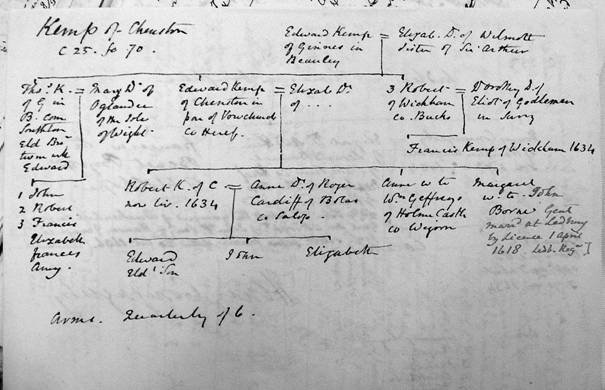 Kemp of Chenston
C 25. fo 70.
Edward Kemp = Elizab. Dr. of Wilmott
of Ginnes in sister of Sir Arthur
Beauley
Thos. K. = Mary Dr. of
of G in Oglander
B. com of the Isle
Southton of Wight.
Eld Bro.
Edward
Edward Kemp = Elizab Dr.
of Chenston in of . . . .
par of Vowchurch
co Heref.
3 Robert = Dorothy D. of
of Wickham Eliot of Godlemen
co Bucks in Surry
Francis Kemp of Wickham 1634
1 John
2 Robert
3 Francis
Elizabeth
frances
Amy.
Robert K. of C = Anne D. of Roger
now liv. 1634 Cardiff of Bolas
co Salop.
Anne w to
Wm Geffreys
of Holme Castle
co Wigorn
Margaret
w. to John
Borne Gent
mard at Ladbury
by Licence 1 April
1618 Lib. Reg.]
Edward
Eld. Son
John
Elizabeth
Arms. Quarterly of 6.